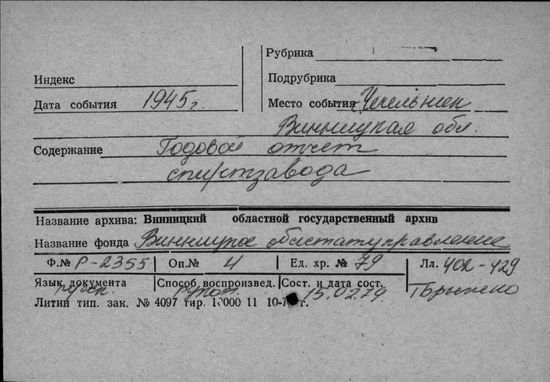 Рубрика
Индекс
Подрубрика
Дата события 1945 г.
Место события Чечельник
Винницкая обл.
Содержание Годовой отчет
спиртзавода
Название архива: Винницкий областной государственный архив
Название фонда Винницкое облстатуправление
Ф.№ Р-2355 Оп.№ 4 Ед. хр. № 79 Лл. 402-429
Язык документа Способ воспроизвед. Сост. и дата сост.
русск. рукоп. 15.02.79
Литин тип. зак. № 4097 тир. 10000 11 10-